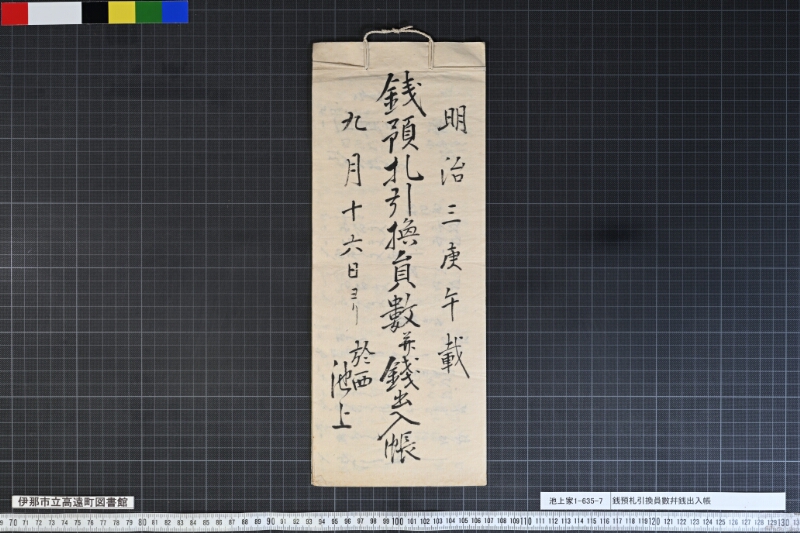 明治三庚午載
銭預札引換員數并錢出入帳
九月十六日ヨリ
於西
池上
伊那市立高遠町図書館
池上家1-635-7 銭預札引換員數幷銭出入帳